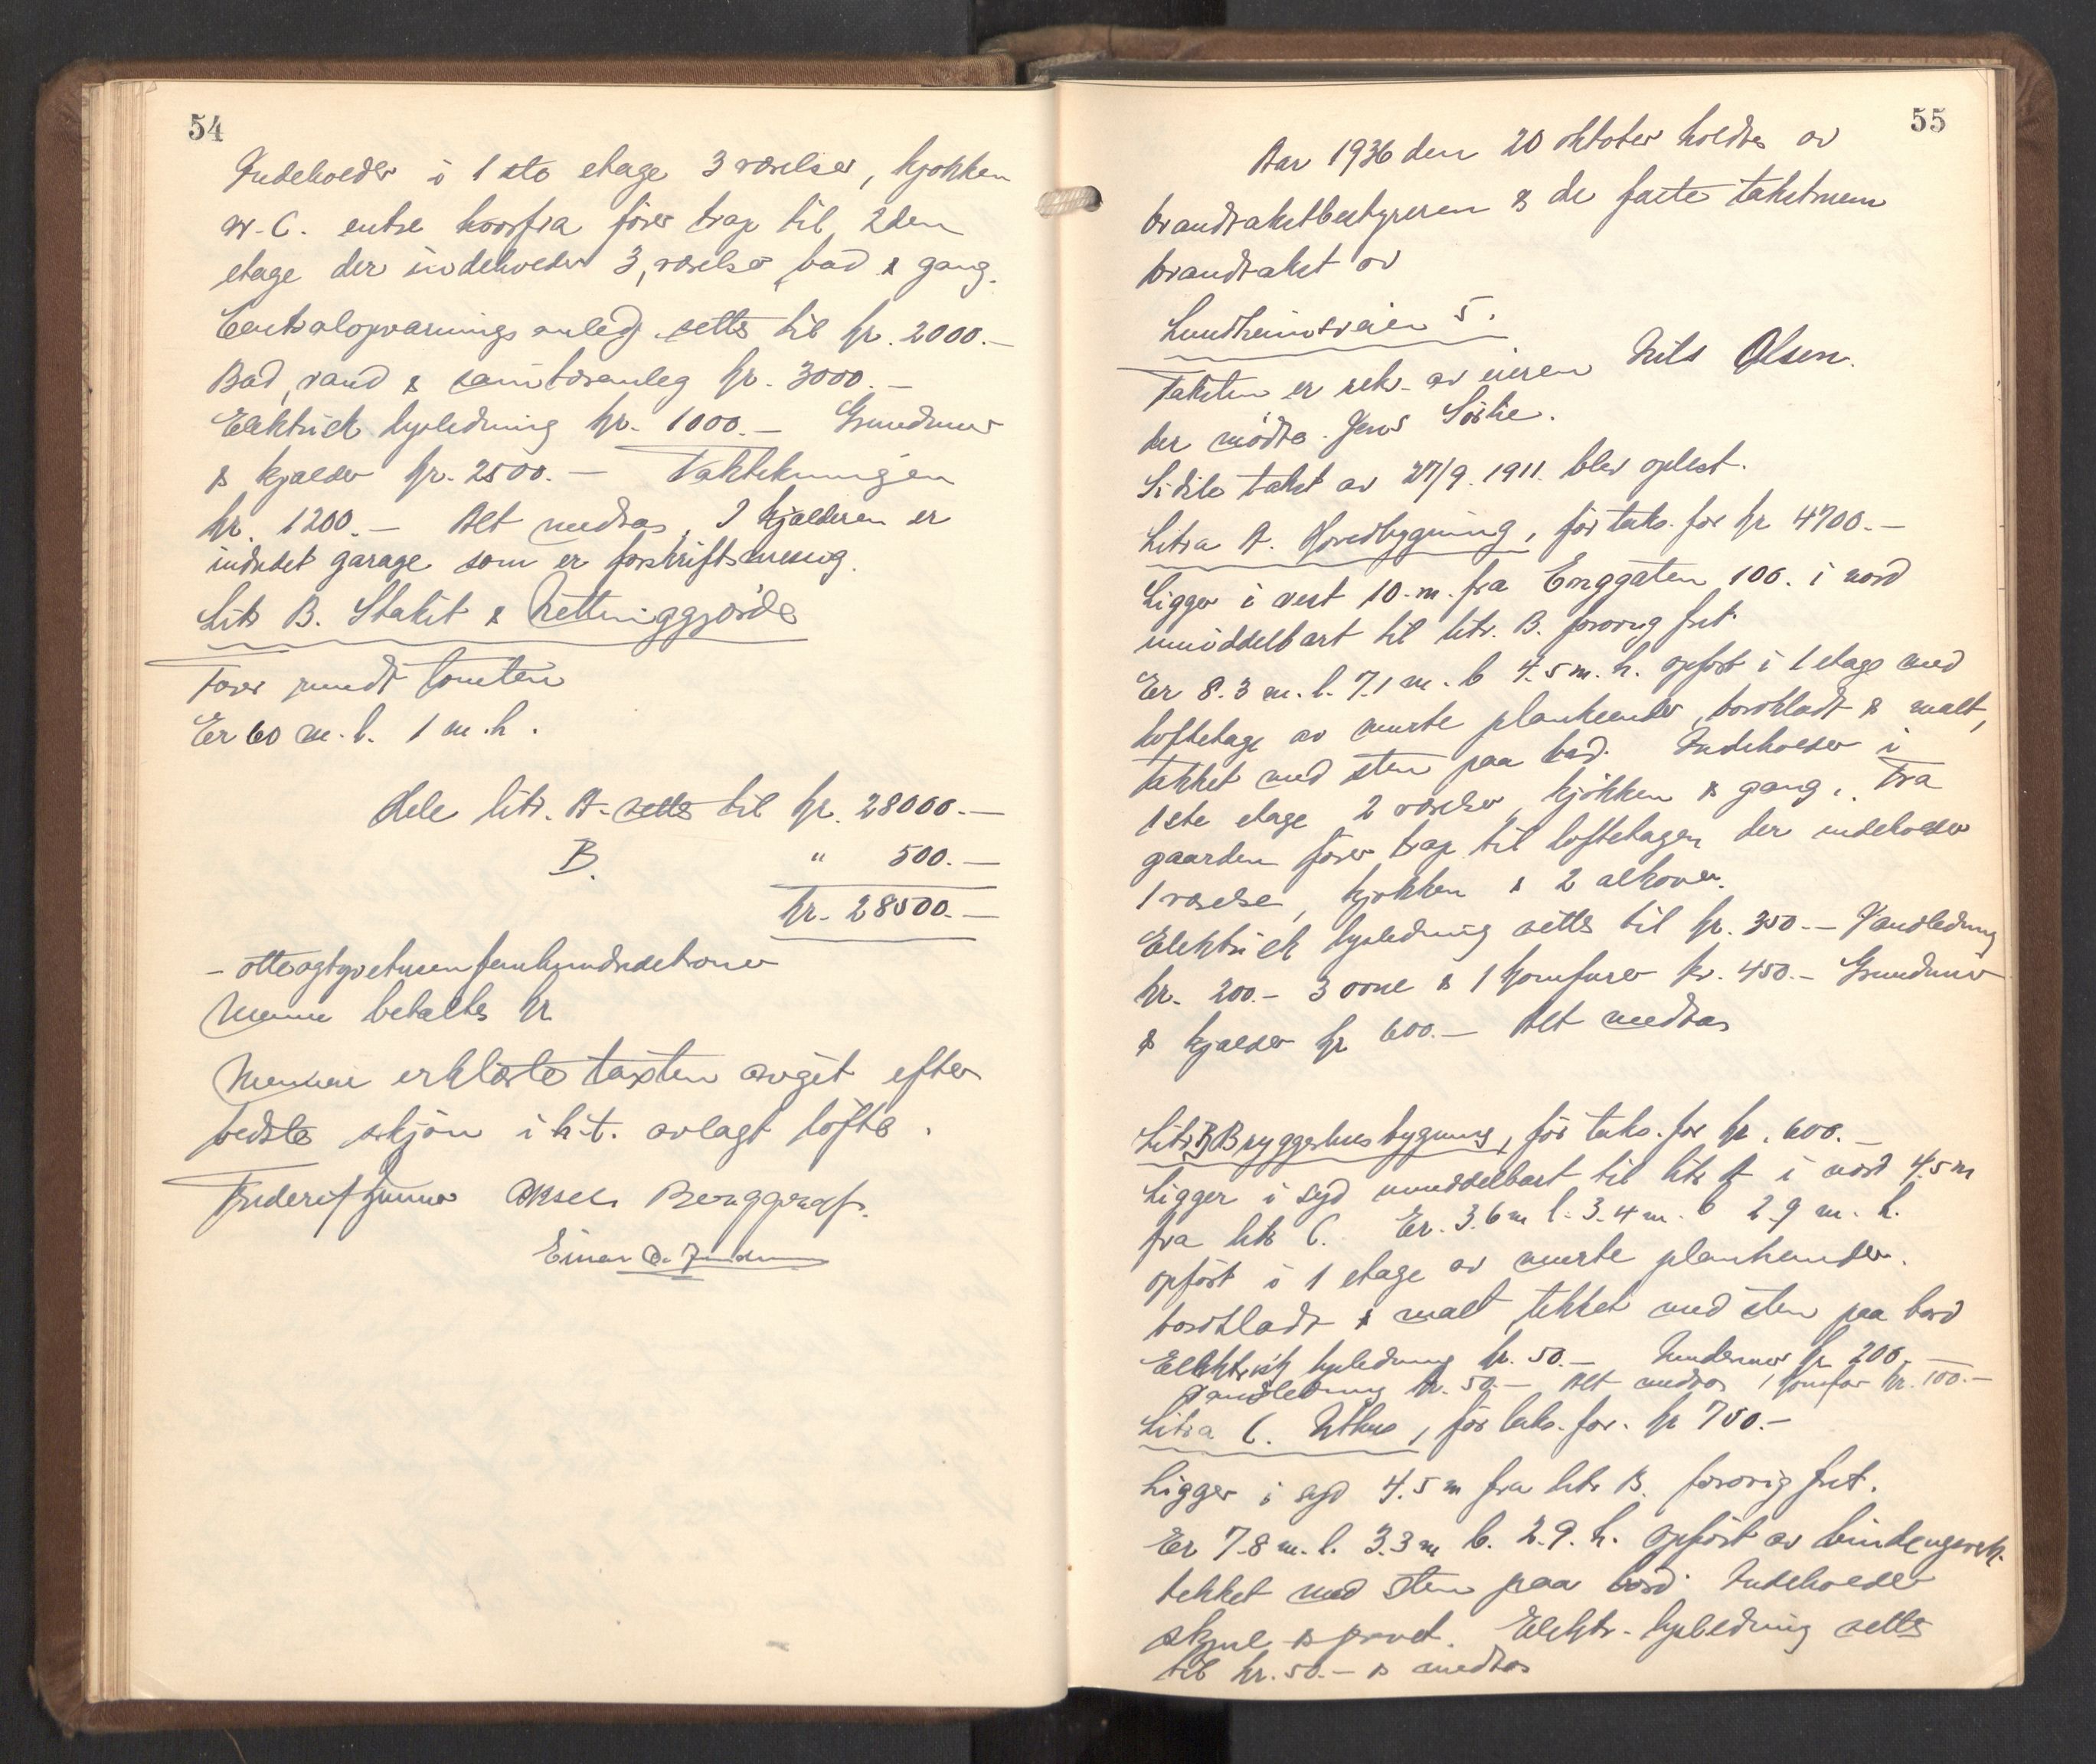 54
Indeholder i 1ste etage 3 værelser, kjøkken
w.c. entre hvorfra fører trap til 2den
etage der indeholder 3 værelser, bad & gang.
Centralopvarmings anlegg settes til kr. 2000.-
Bad, vand & sanitæranleg kr. 3000.-
Elektrisk lysledning kr. 1000.- Grundmur
& kjælder kr. 2500.- Taktekningen
kr. 1200.- Alt medtas, I kjælderen er
indredet garage som er forskriftsmessig.
Litr B. Stakit & Nettinggjærde
Fører rundt tomten
Er 60 m. l. 1 m. h.
Hele litr. A. settes til kr. 28000.-
B. " 500.-
kr. 28500.-
- otteogtyvetusenfemhundredekroner
Menne betaltes kr
Mennene erklærte taxten avgit efter
bedste skjøn i h.t. avlagt løfte.
Aksel Berggraf.
Einar
55
Aar 1936 den 20 oktober holdtes av
brandtakstbestyreren & de faste takstmenn
brandtakst av
Lundheimsveien 5.
Taksten er rekv. av eieren Nils Olsen.
Der mødte Jens
Sidste takst av 27/9. 1911. blev oplest.
Litra A. Hovedbygning, før taks. for kr 4700.-
Ligger i vest 10. m. fra Enggaten 106. i nord
umiddelbart til litr. B. forøvrig frit
Er 8.3 m. l. 7.1 m. b 4.5 m. h. opført i 1 etage med
loftetage av murte plankeender, bordkladt & malt,
tekket med sten paa bord. Indeholder i
1ste etage 2 værelser, kjøkken & gang. Fra
gaarden fører trap til loftetagen der indeholder
1 værelse, kjøkken & 2 alkover.
Elektrisk lysledning settes til kr. 350.- Vandledning
kr. 200.- 3 ovne & 1 komfurer kr. 450.- Grundmur
& kjælder kr 600.- Alt medtas
Litr B. Bryggerhusbygning, før taks. for kr. 600.-
Ligger i syd umiddelbart til litr A i nord 4.5 m
fra litr C. Er 3.6 m l. 3.4 m. b 2.9 m. h.
opført i 1 etage av murte plankeender.
bordkladt & malt, tekket med sten paa bord
Elektrisk lysledning kr. 50.- Grundmur kr 200.-
Vandledning kr. 50.- Alt medtas 1 komfur kr. 100.-
Litra C. Uthus, før taks. for. kr 750.-
Ligger i syd 4.5 m fra litr B. forøvrig frit.
Er 7.8 m. l. 3.3 m b. 2.9. h. opført av bindingsverk.
tekket med sten paa bord. Indeholder
skjul & privet. Elektr. lysledning settes
til kr. 50.- & medtas